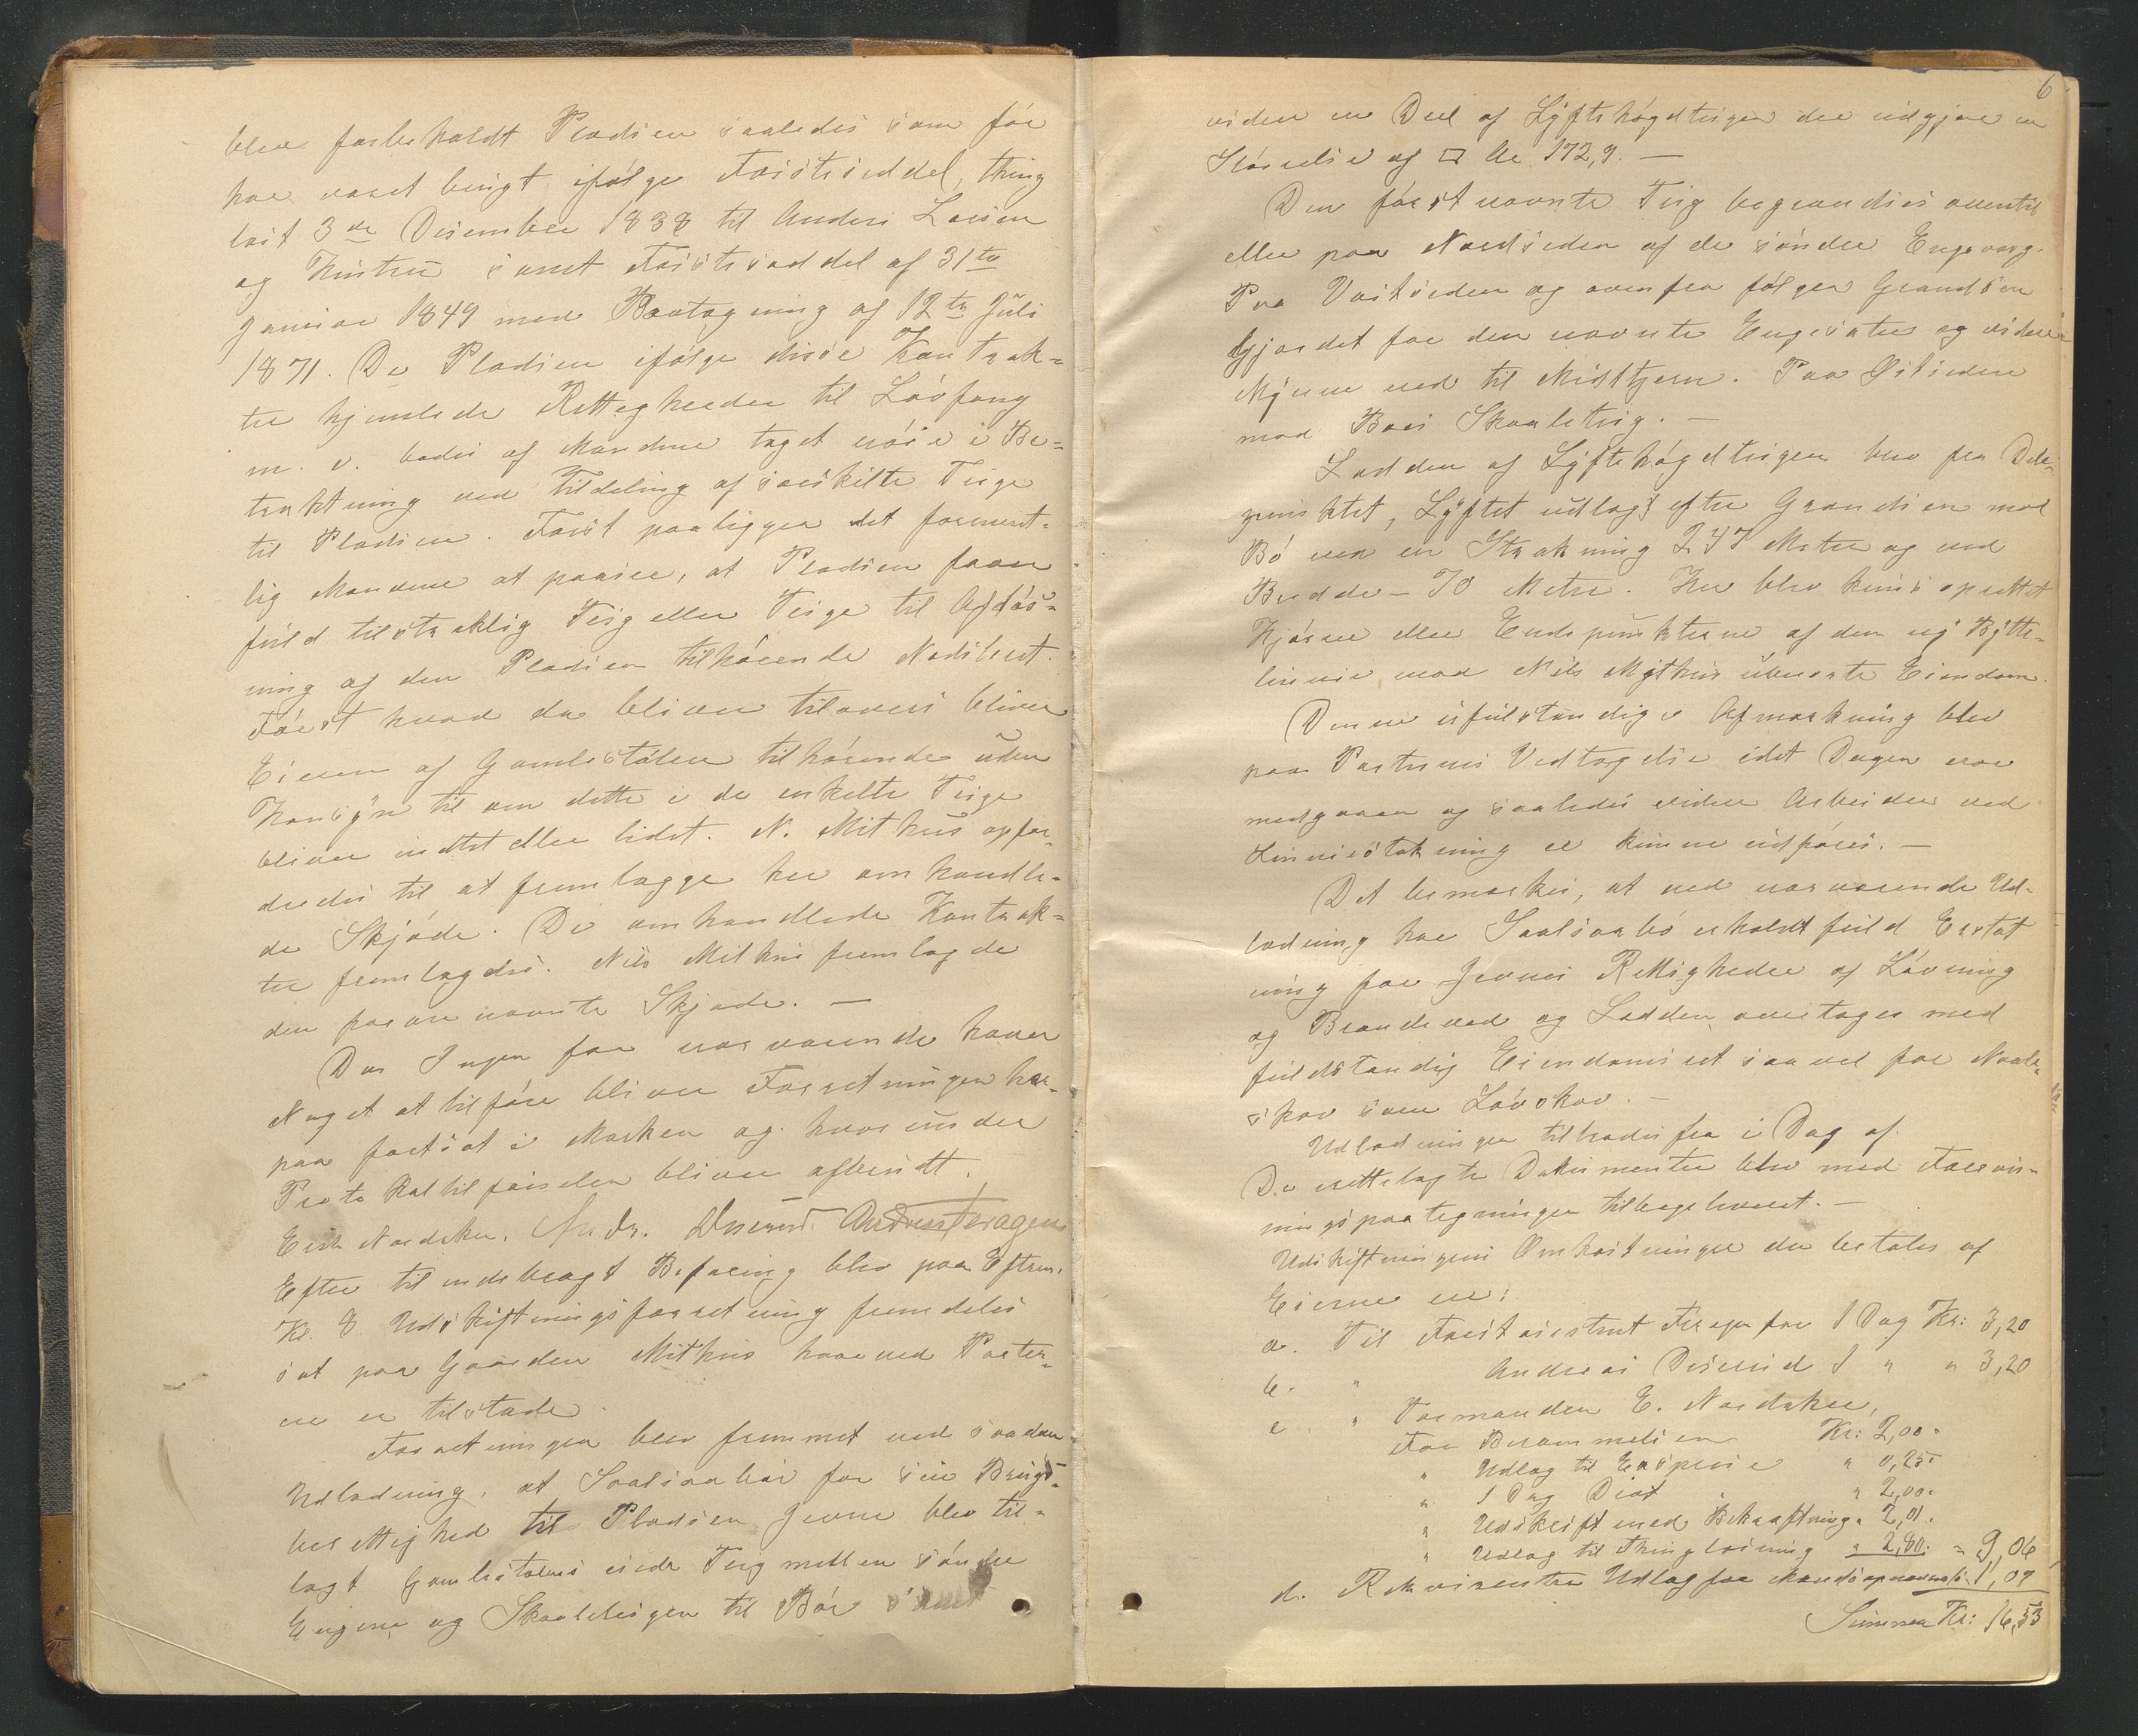 blev forbeholdt Pladsen saaledes som før
har været brugt ifølge Fæsteseddel, thing
læst 3die Desember 1838 til Anders Larsen
og Hustru samt Fæstesæddel af 31te
Januar 1849 med Paategning af 12te Juli
1871. De Pladsen ifølge disse Kontrak=
ter hjemlede Rettigheder til Løvfang
m. v. bades af Mændene taget nøie i Be=
tragtning ved Tildeling af særskilte Teige
til Pladsen. Først paaligger det forment=
lig Mændene at paasee, at Pladsen faar
fuld tilstrækkelig Teig eller Teige til Afløs=
ning af den Pladsen tilhørende Nødsbert.
Først hvad der bliver tilovers bliver
Eieren af Gamlestølen tilhørende uden
Hensyn til om dette i de enkelte Teige
bliver indtet eller lidet. N. Mithus opfor=
dredes til at fremlægge her omhandle=
de Skjøde. De omhandlede Kontrak=
ter fremlagdes. Nils Mithus fremlagde
den forannævnte Skjøde. —
Da Ingen for nærværende haver
Noget at tilføre bliver Forretningen her=
paa fortsat i Marken og hvorunder
Protokoltilførselen bliver afbrudt.
Erik Nordaker. Andr. Diserud Anders Teragen
Efter tilendebragt Befaring blev paa Efterm.
Kl. 8 Udskiftningsforretning fremdeles
sat paa Gaarden Mithus hvorved Parter=
ne er tilstede.
Forretningen blev fremmet ved saadan
Udlodning, at Saalsaabøs for sin Brugs=
berettighed til Pladsen Jevne blev til=
lagt Gamlestølens eiede Teig mellem søndre
Engene og Skaalteigen til Bøe samt
6
viden en Deel af Lyftehøgdteigen der udgjør en
Størrelse af □ Ar 172,9. —
Den først nævnte Teig begrændses oventil
eller paa Nordsiden af de søndre Engevorg.
Paa Vestsiden og ovenfra følger Grændsen
Gjerdet for den nævnte Engesæter og videre
Myrene ned til Midttjern. Paa Østsiden
mod Bøes Skaalteig. —
Lodden af Lyftehøgdteigen blev fra Dele=
punktet, Lyftet udlagt efter Grændsen mod
Bø ved en Strækning 247 Meter og ved
Bredde – 70 Meter. Her blev kuns oprettet
Hjørne eller Endepunkterne af den ny Bytte=
linnie mod Nils Mythus ubenævnte Eiendom.
Denne ufulstændige Afmærkning blev
paa Parternes Vedtagelse idet Dagen var
medgaaen og saaledes videre Arbeider ved
Linniestikning er kunne udføres. —
Det bemærkes, at ved nærværende Ud=
lodning har Saalsaabø erholdt fuld Erstat
ning for Jevnes Rettigheder af Løvning
og Brændeved og Lodden overtages med
fuldstændig Eiendomsret saavel for Naale=
skov som Løvskov. —
Udlodningen tiltrædes fra i Dag af.
De irettelagte Dokumenter blev med Forevis=
ningspaategninger tilbageleveret. —
Udskiftningens Omkostninger der betales af
Eierne er:
a. Til Forstassistent Teragen for 1 Dag Kr: 3,20
b. " Andreas Diserud 1 " " 3,20
c. " Formanden E. Nordaker,
For Berammelsen Kr: 2,00.
" Udlæg til Expresse " 0,25
" 1 Dag Diæt " 2,00.
" Udskrift med Bekræftning " 2,01.
" Udlæg til Thinglæsning " 2,80. = 9,06
d. Rekvirenten Udlæg for Mændsopnævnelse 1,07
Summa Kr: 16,53